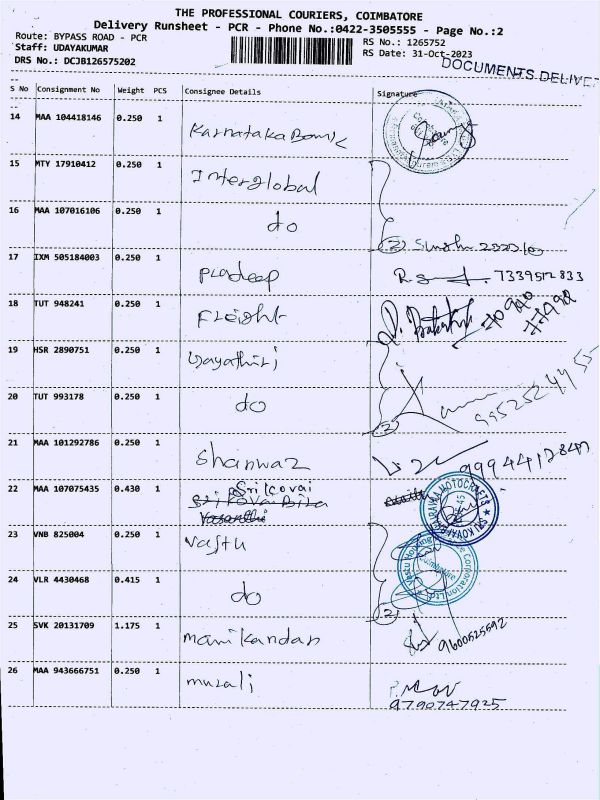 THE PROFESSIONAL COURIERS, COIMBATORE
Delivery Runsheet - PCR - Phone No.:0422-3505555 - Page No.:2
Route: BYPASS ROAD - PCR
RS No.: 1265752
Staff: UDAYAKUMAR
RS Date: 31-Oct-2023
DRS No.: DCJB126575202
DOCUMENTS DELIVE
S No Consignment No Weight PCS Consignee Details Signature
14 MAA 104418146 0.250 1 Karnataka Bank
15 MTY 17910412 0.250 1 Interglobal
16 MAA 107016106 0.250 1 do
17 IXM 505184003 0.250 1 pradeep 7339512833
18 TUT 948241 0.250 1 Freight
19 HSR 2890751 0.250 1 Gayathiri
20 TUT 993178 0.250 1 do
21 MAA 101292786 0.250 1 Shanwaz
22 MAA 107075435 0.430 1 Sri Kovai
23 VNB 825004 0.250 1 Vastu
24 VLR 4430468 0.415 1 do
25 SVK 20131709 1.175 1 manikandan 9600525592
26 MAA 943666751 0.250 1 murali
9790747925